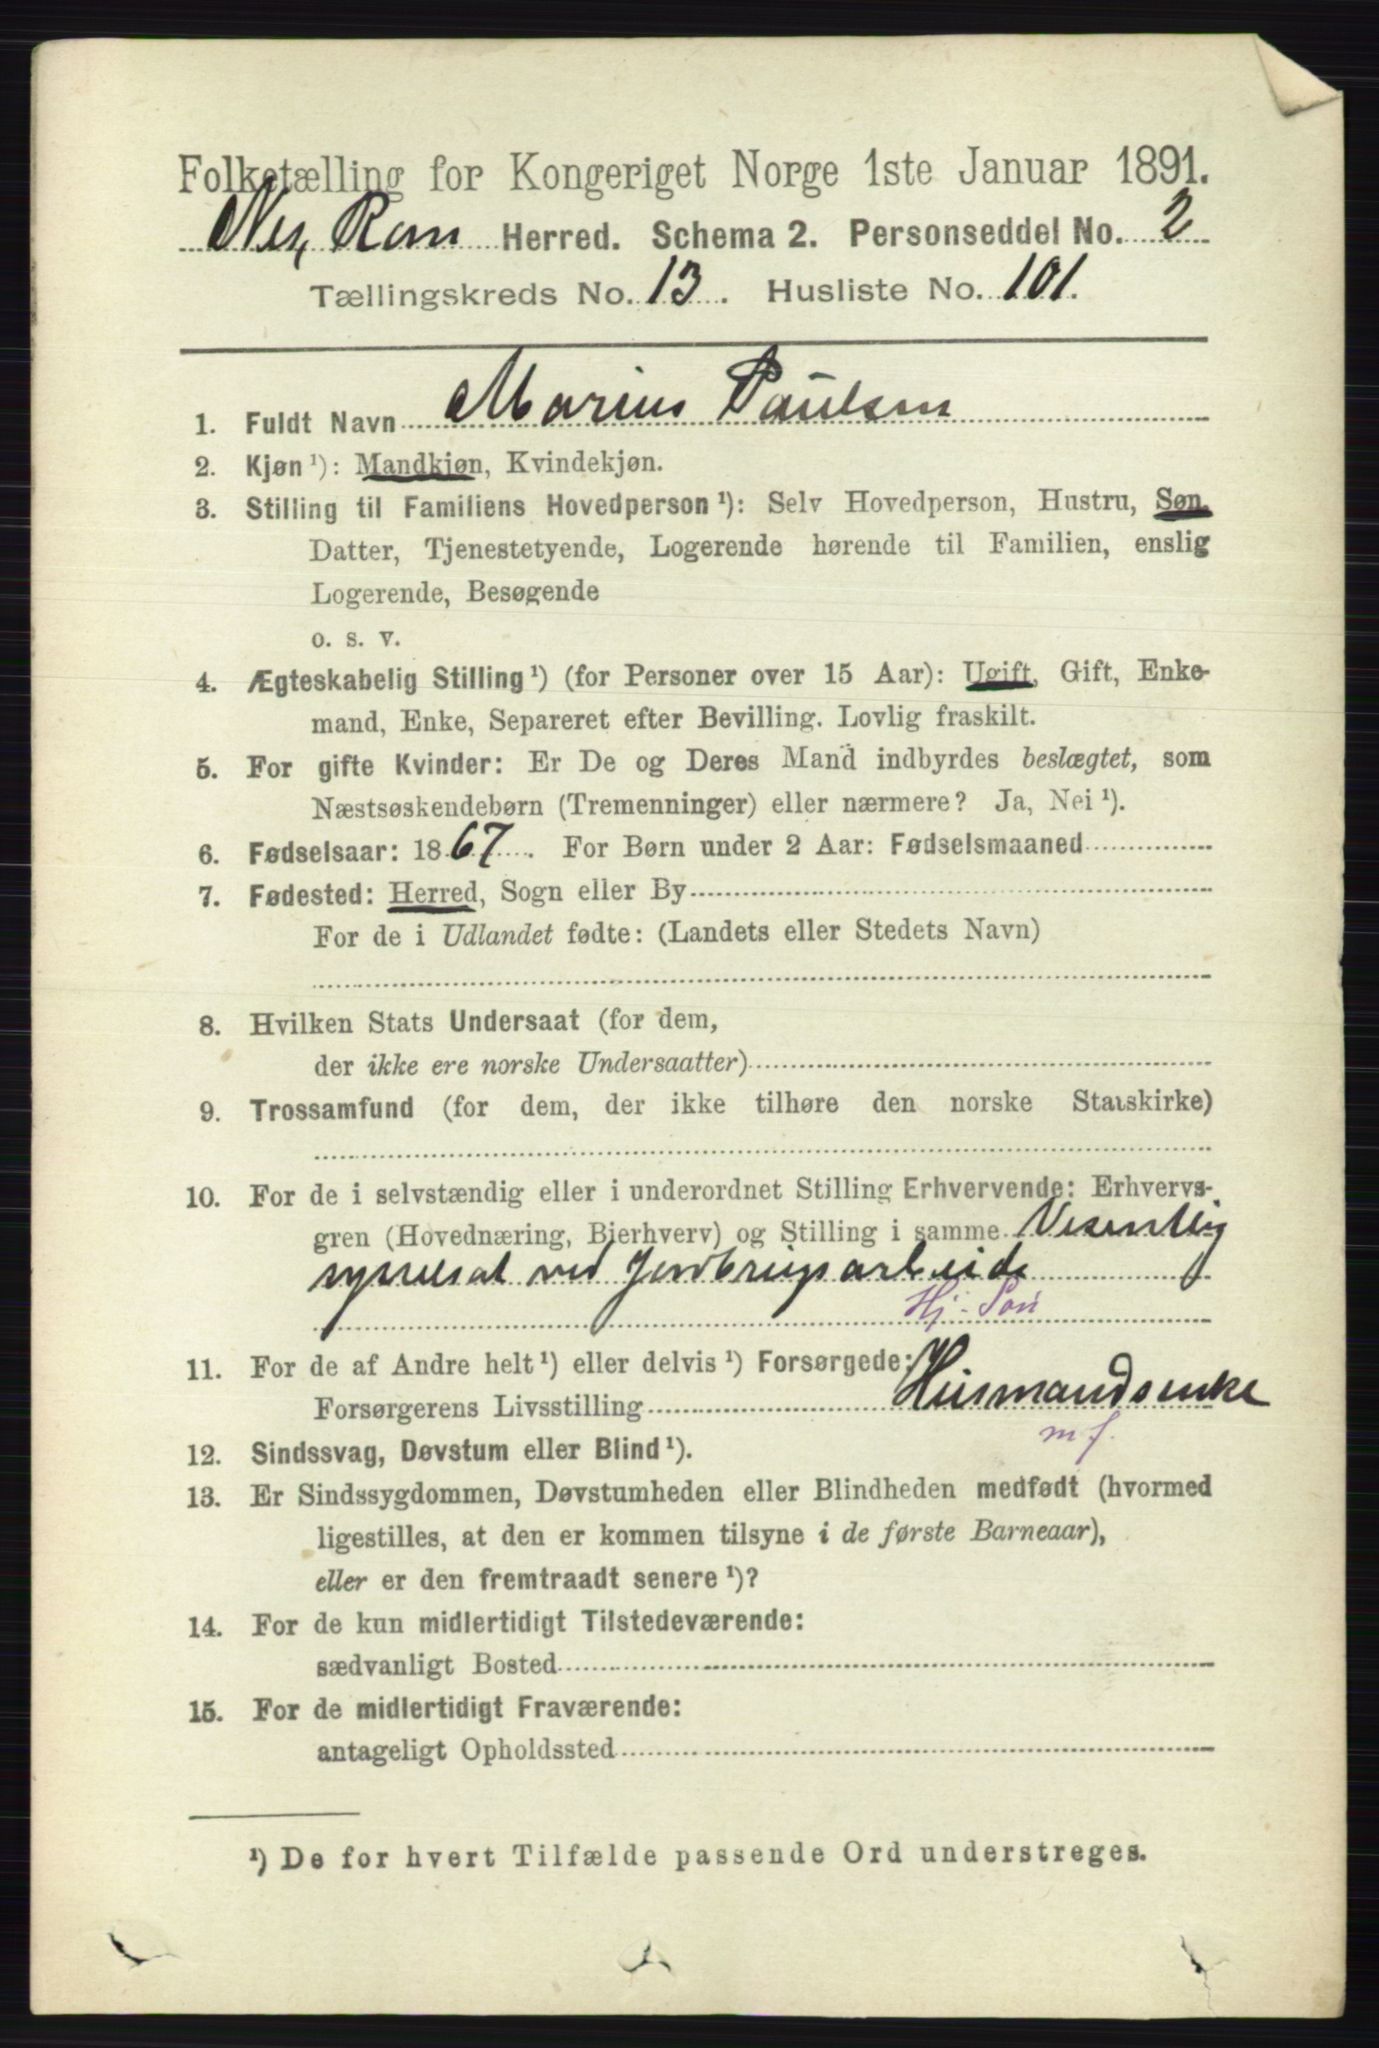 Folketælling for Kongeriget Norge 1ste Januar 1891.
Nes, Rom Herred. Schema 2. Personseddel No. 2
Tællingskreds No. 13. Husliste No. 101.
1. Fuldt Navn Marius Paulsen
2. Kjøn ¹): Mandkjøn, Kvindekjøn.
3. Stilling til Familiens Hovedperson ¹): Selv Hovedperson, Hustru, Søn,
Datter, Tjenestetyende, Logerende hørende til Familien, enslig
Logerende, Besøgende
o. s. v.
4. Ægteskabelig Stilling ¹) (for Personer over 15 Aar): Ugift, Gift, Enke-
mand, Enke, Separeret efter Bevilling. Lovlig fraskilt.
5. For gifte Kvinder: Er De og Deres Mand indbyrdes beslægtet, som
Næstsøskendebørn (Tremenninger) eller nærmere? Ja, Nei ¹).
6. Fødselsaar: 1867. For Børn under 2 Aar: Fødselsmaaned
7. Fødested: Herred, Sogn eller By
For de i Udlandet fødte: (Landets eller Stedets Navn)
8. Hvilken Stats Undersaat (for dem,
der ikke ere norske Undersaatter)
9. Trossamfund (for dem, der ikke tilhøre den norske Statskirke)
10. For de i selvstændig eller i underordnet Stilling Erhvervende: Erhvervs-
gren (Hovednæring, Bierhverv) og Stilling i samme Vesentlig
sysselsat ved Jordbrugsarbeide
Hj. Søn
11. For de af Andre helt ¹) eller delvis ¹) Forsørgede:
Forsørgerens Livsstilling Husmandsenke
m f.
12. Sindssvag, Døvstum eller Blind ¹).
13. Er Sindssygdommen, Døvstumheden eller Blindheden medfødt (hvormed
ligestilles, at den er kommen tilsyne i de første Barneaar),
eller er den fremtraadt senere ¹)?
14. For de kun midlertidigt Tilstedeværende:
sædvanligt Bosted
15. For de midlertidigt Fraværende:
antageligt Opholdssted
¹) De for hvert Tilfælde passende Ord understreges.